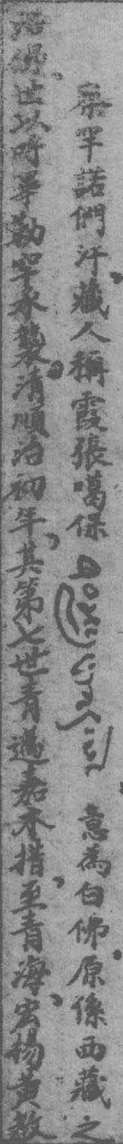 察罕諾們汗，藏人稱霞張噶保 意為白佛，原係西藏之
活佛，世以呼畢勒罕承襲。清順治初年，其第七世青遇嘉木措，至青海，宏揚黃教